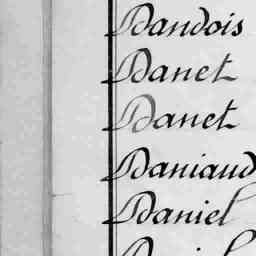 Dandois
Danet
Danet
Daniaud
Daniel